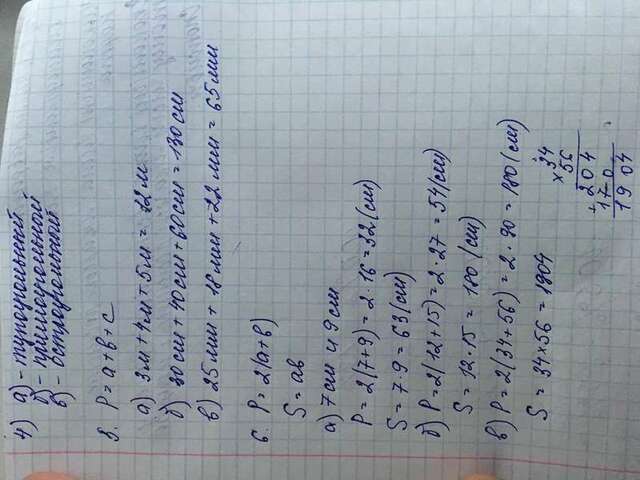 4) а) - тупоугольный
б) - прямоугольный
в) - остроугольный
8. P = a + b + c
а) 3м + 4м + 5м = 12м
б) 30 см + 40см + 60см = 130 см
в) 25мм + 18мм + 22мм = 65мм
6. P = 2(a+b)
S = ab
а) 7см и 9см
P = 2(7+9) = 2 · 16 = 32(см)
S = 7 · 9 = 63(см)
б) P = 2(12+15) = 2 · 27 = 54(см)
S = 12 · 15 = 180 (см)
в) P = 2(34+56) = 2 · 90 = 180(см)
S = 34 × 56 = 1904
× 34
56
204
+ 170
1904